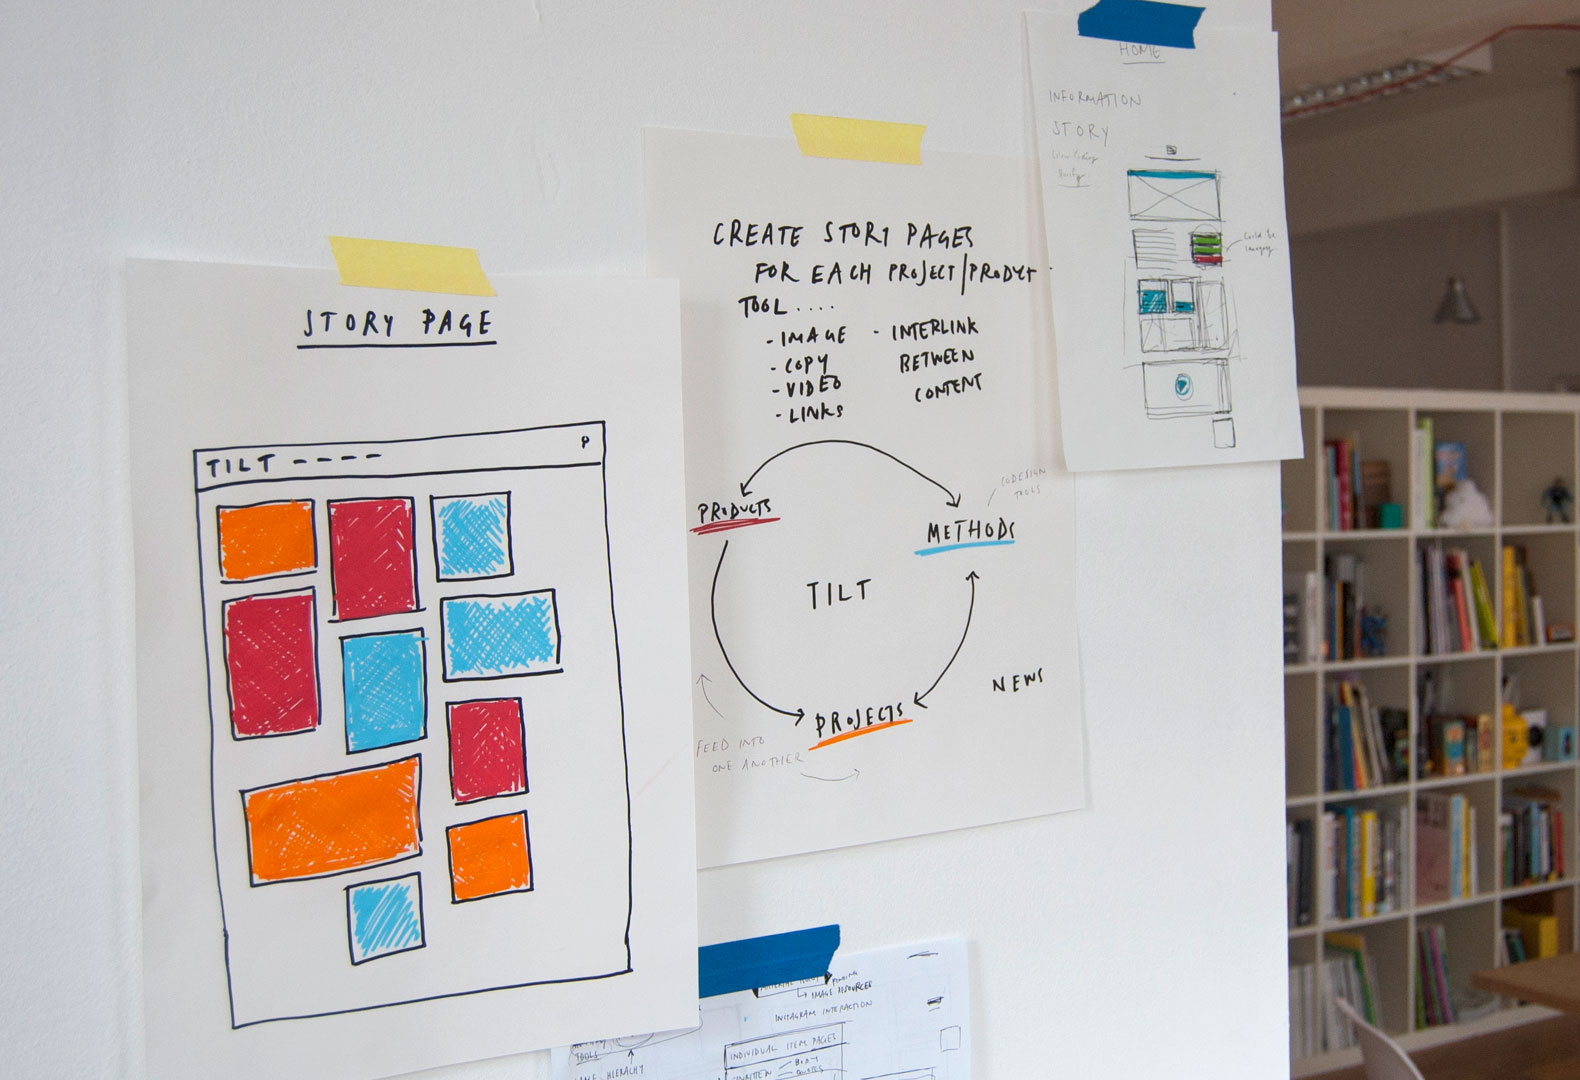 STORY PAGE
TILT
P
CREATE STORY PAGES
FOR EACH PROJECT/PRODUCT
TOOL ....
- IMAGE
- COPY
- VIDEO
- LINKS
- INTERLINK
BETWEEN
CONTENT
PRODUCTS
METHODS
CODESIGN
TOOLS
TILT
PROJECTS
NEWS
FEED INTO
ONE ANOTHER
HOME
INFORMATION
STORY
Could be
IMAGE RESOURCES
INSTAGRAM INTERACTION
INDIVIDUAL ITEM PAGES
BODY
TOOLS